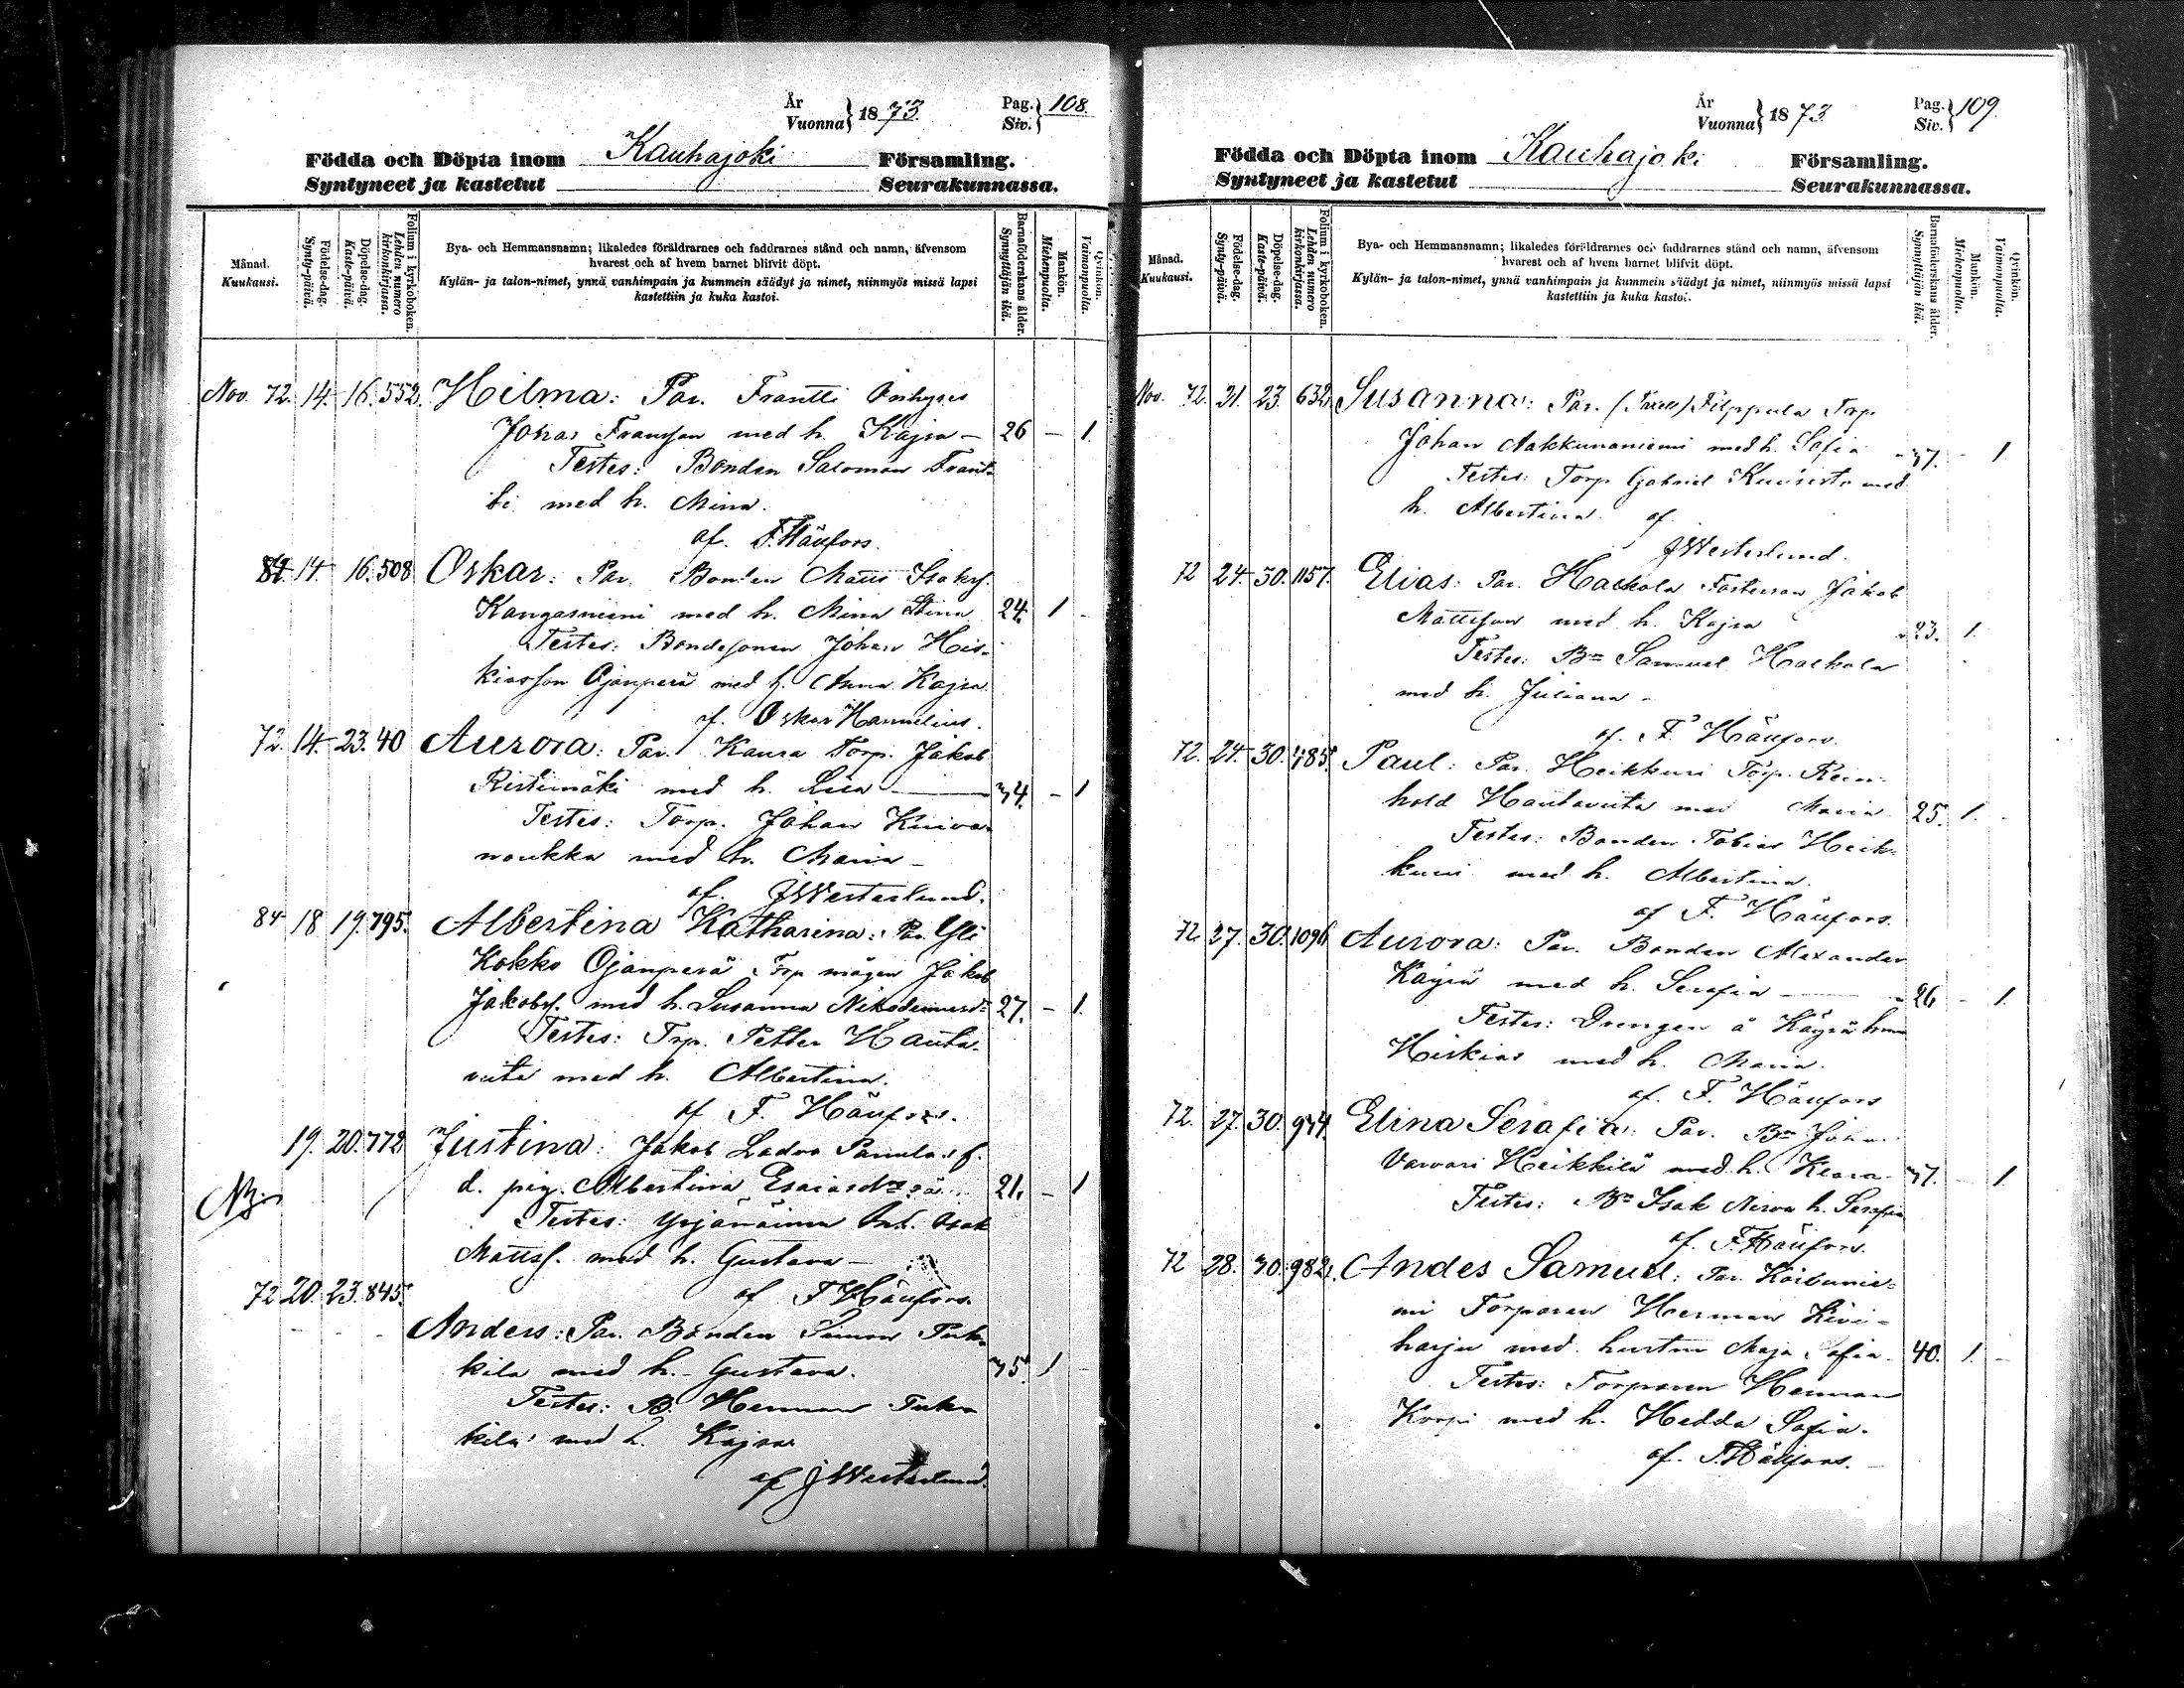 År Vuonna } 1873. Pag. Siv. } 108.
Födda och Döpta inom Kauhajoki Församling.
Syntyneet ja kastetut Seurakunnassa.
Månad. Kuukausi.
Födelse-dag. Synty-päivä.
Döpelse-dag. Kaste-päivä.
Folium i kyrkoboken. Lehden numero kirkonkirjassa.
Bya- och Hemmansnamn; likaledes föräldrarnes och faddrarnes stånd och namn, äfvensom
hvarest och af hvem barnet blifvit döpt.
Kylän- ja talon-nimet, ynnä vanhimpain ja kummein säädyt ja nimet, niinmyös missä lapsi
kastettiin ja kuka kastoi.
Barnaföderskans ålder. Synnyttäjän ikä.
Mankön. Miehenpuolta.
Qvinkön. Vaimonpuolta.
Nov. 72. 14. 16. 552. Hilma: Par. Frantti
Johan Fransson med h. Kajsa — 26 — 1.
Testes: Bonden Salomon Frant-
ti med h. Mina.
af. F. Häufors.
84 14 16. 508 Oskar: Par. Bonden Matts Isaks.
Kangasniemi med h. Mina Stina 24. 1 -
Testes: Bondesonen Johan His-
kiasson Ojanperä med h. Anna Kajsa.
af. Oskar Hannelius.
72. 14. 23. 40 Aurora: Par. Kaura Torp. Jakob
Ristimäki med h. Lisa — 34. — 1
Testes: Torp. Johan Kniva-
noukka med h. Maria —
af. J Westerlund.
84 18 19. 795. Albertina Katharina: Par. Yli
Kokko Ojanperä Torp mågen Jakob
Jakobss. med h. Susanna Nikodemusd. 27. — 1.
Testes: Trp. Petter Hauta-
viita med h. Albertina.
af F. Häufors.
19. 20. 772 Justina: Jakob Ladvo Panula s. f.
d. pig. Albertina Esaiasdr 21. — 1
Testes: Yrjänäinen Isak
Mattss. med h. Gustava —
af F Häufors.
72 20. 23. 845. Anders: Par. Bonden Simon Tuk-
kila med h. Gustava. 35. 1
Testes: B. Herman Tuk-
kila med h. Kajsa
af J Westerlund.
År Vuonna } 1873. Pag. Siv. } 109.
Födda och Döpta inom Kauhajoki Församling.
Syntyneet ja kastetut Seurakunnassa.
Månad. Kuukausi.
Födelse-dag. Synty-päivä.
Döpelse-dag. Kaste-päivä.
Folium i kyrkoboken. Lehden numero kirkonkirjassa.
Bya- och Hemmansnamn; likaledes föräldrarnes och faddrarnes stånd och namn, äfvensom
hvarest och af hvem barnet blifvit döpt.
Kylän- ja talon-nimet, ynnä vanhimpain ja kummein säädyt ja nimet, niinmyös missä lapsi
kastettiin ja kuka kastoi.
Barnaföderskans ålder. Synnyttäjän ikä.
Mankön. Miehenpuolta.
Qvinkön. Vaimonpuolta.
Nov. 72. 21. 23. 632. Susanna: Par. Filppula Torp.
Johan Aakkunaniemi med h. Sofia 37. - 1
Testes: Torp. Gabriel Kuusisto med
h. Albertina. af
J Westerlund.
72 24. 30. 1157. Elias: Par. Harkola Jakob
Mattsson med h. Kajsa 23. 1.
Testes: Bn Samuel Harkola
med h. Juliana -
af. F. Häufors.
72. 24. 30. 485. Paul: Par. Heikkuri Torp. Rein-
hold Hautaviita med Maria 25. 1.
Testes: Bonden Tobias Heik-
kuri med h. Albertina.
af F. Häufors.
72 27. 30. 1096 Aurora: Par. Bonden Alexander
Käyrä med h. Serafia — 26 - 1.
Testes: Drengen å Käyrä hmn
Hiskias med h. Maria.
af. F. Häufors
72. 27. 30. 934. Elina Serafia: Par. Bn
Varvari Heikkilä med h. Klara 37. 1
Testes: Bn Isak Nirva h. Serafia
af. F. Häufors.
72 28. 30. 982. Andes Samuel: Par. Koivunie-
mi Torparen Herman Kivi-
harju med hustru Maja Sofia 40. 1. -
Testes: Torparen Herman
Korpi med h. Hedda Sofia.
af. F. Häufors.